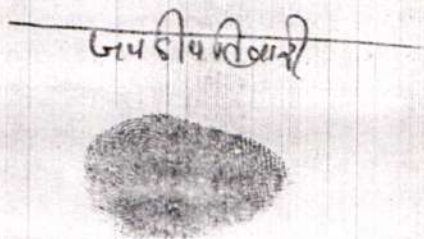 जयदीप तिवारी